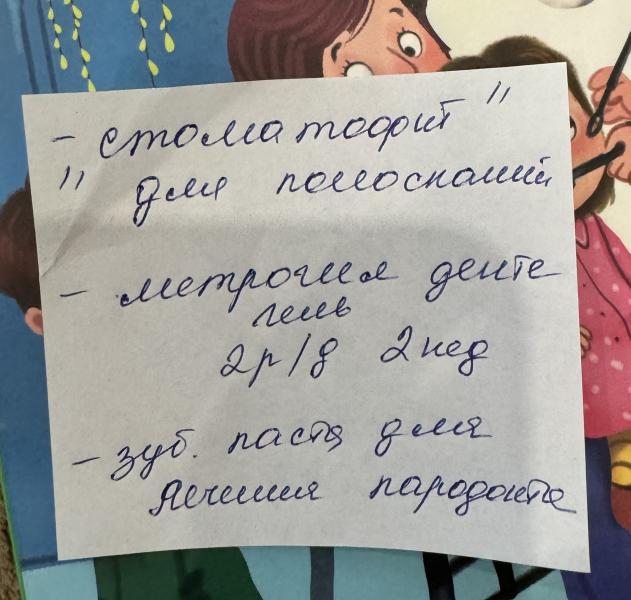 - стоматофит "
" для полосканий
- метрогил дента
гель
2р/д 2 нед
- зуб. паста для
лечения пародонта